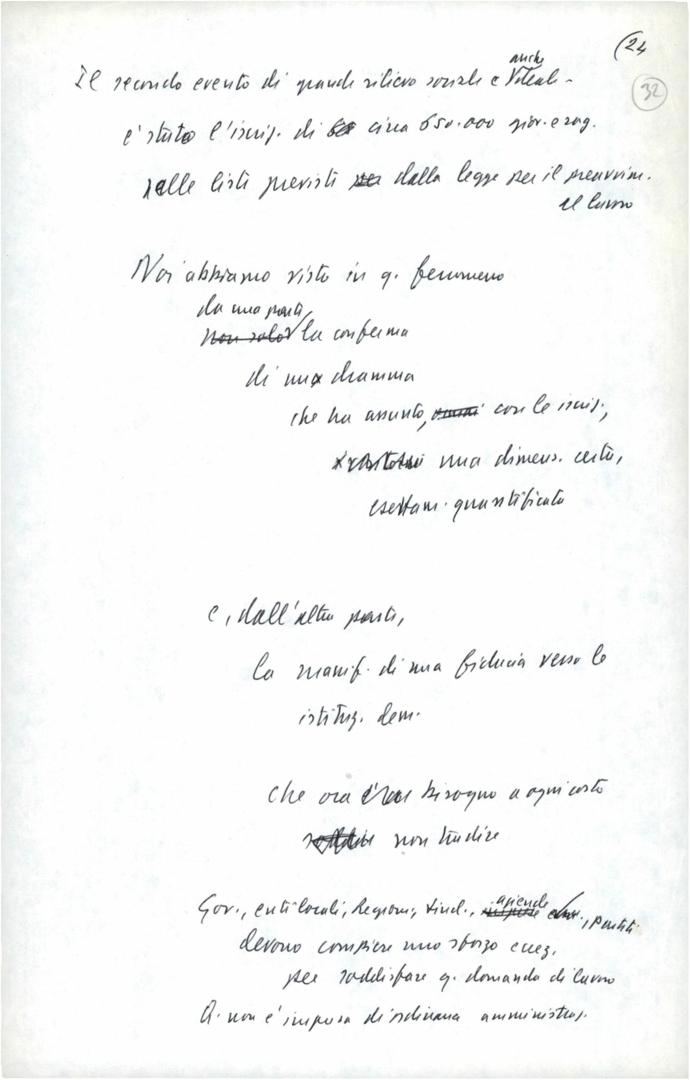 (24
32
Il secondo evento di grande rilievo sociale e anche
è stato l'iscriz. di circa 650.000 giov. e rag.
nelle liste previste dalla legge per il preavviam.
al lavoro
Noi abbiamo visto in q. fenomeno
da una parte
non solo la conferma
di un dramma
che ha assunto, con le iscriz.,
una dimens. certa,
esattam. quantificata
e, dall'altra parte,
la manif. di una fiducia verso le
istituz. dem.
che ora bisogno a ogni costo
non tradire
Gov., enti locali, Regioni, sind., aziende , partiti
devono compiere uno sforzo eccez.
per soddisfare q. domanda di lavoro
Q. non è impresa di ordinaria amministraz.